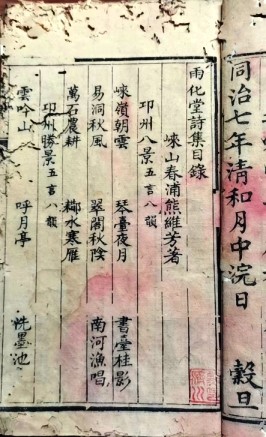 同治七年清和月中浣日 穀旦
雨化堂詩集目錄
崍山春浦熊維芳著
邛州八景五言八韻
崍嶺朝雲 琴臺夜月 書臺桂影
易洞秋風 翠閣秋陰 南河漁唱
萬石農耕 鄰水寒雁
邛州勝景五言八韻
雲吟山 呼月亭 洗墨池